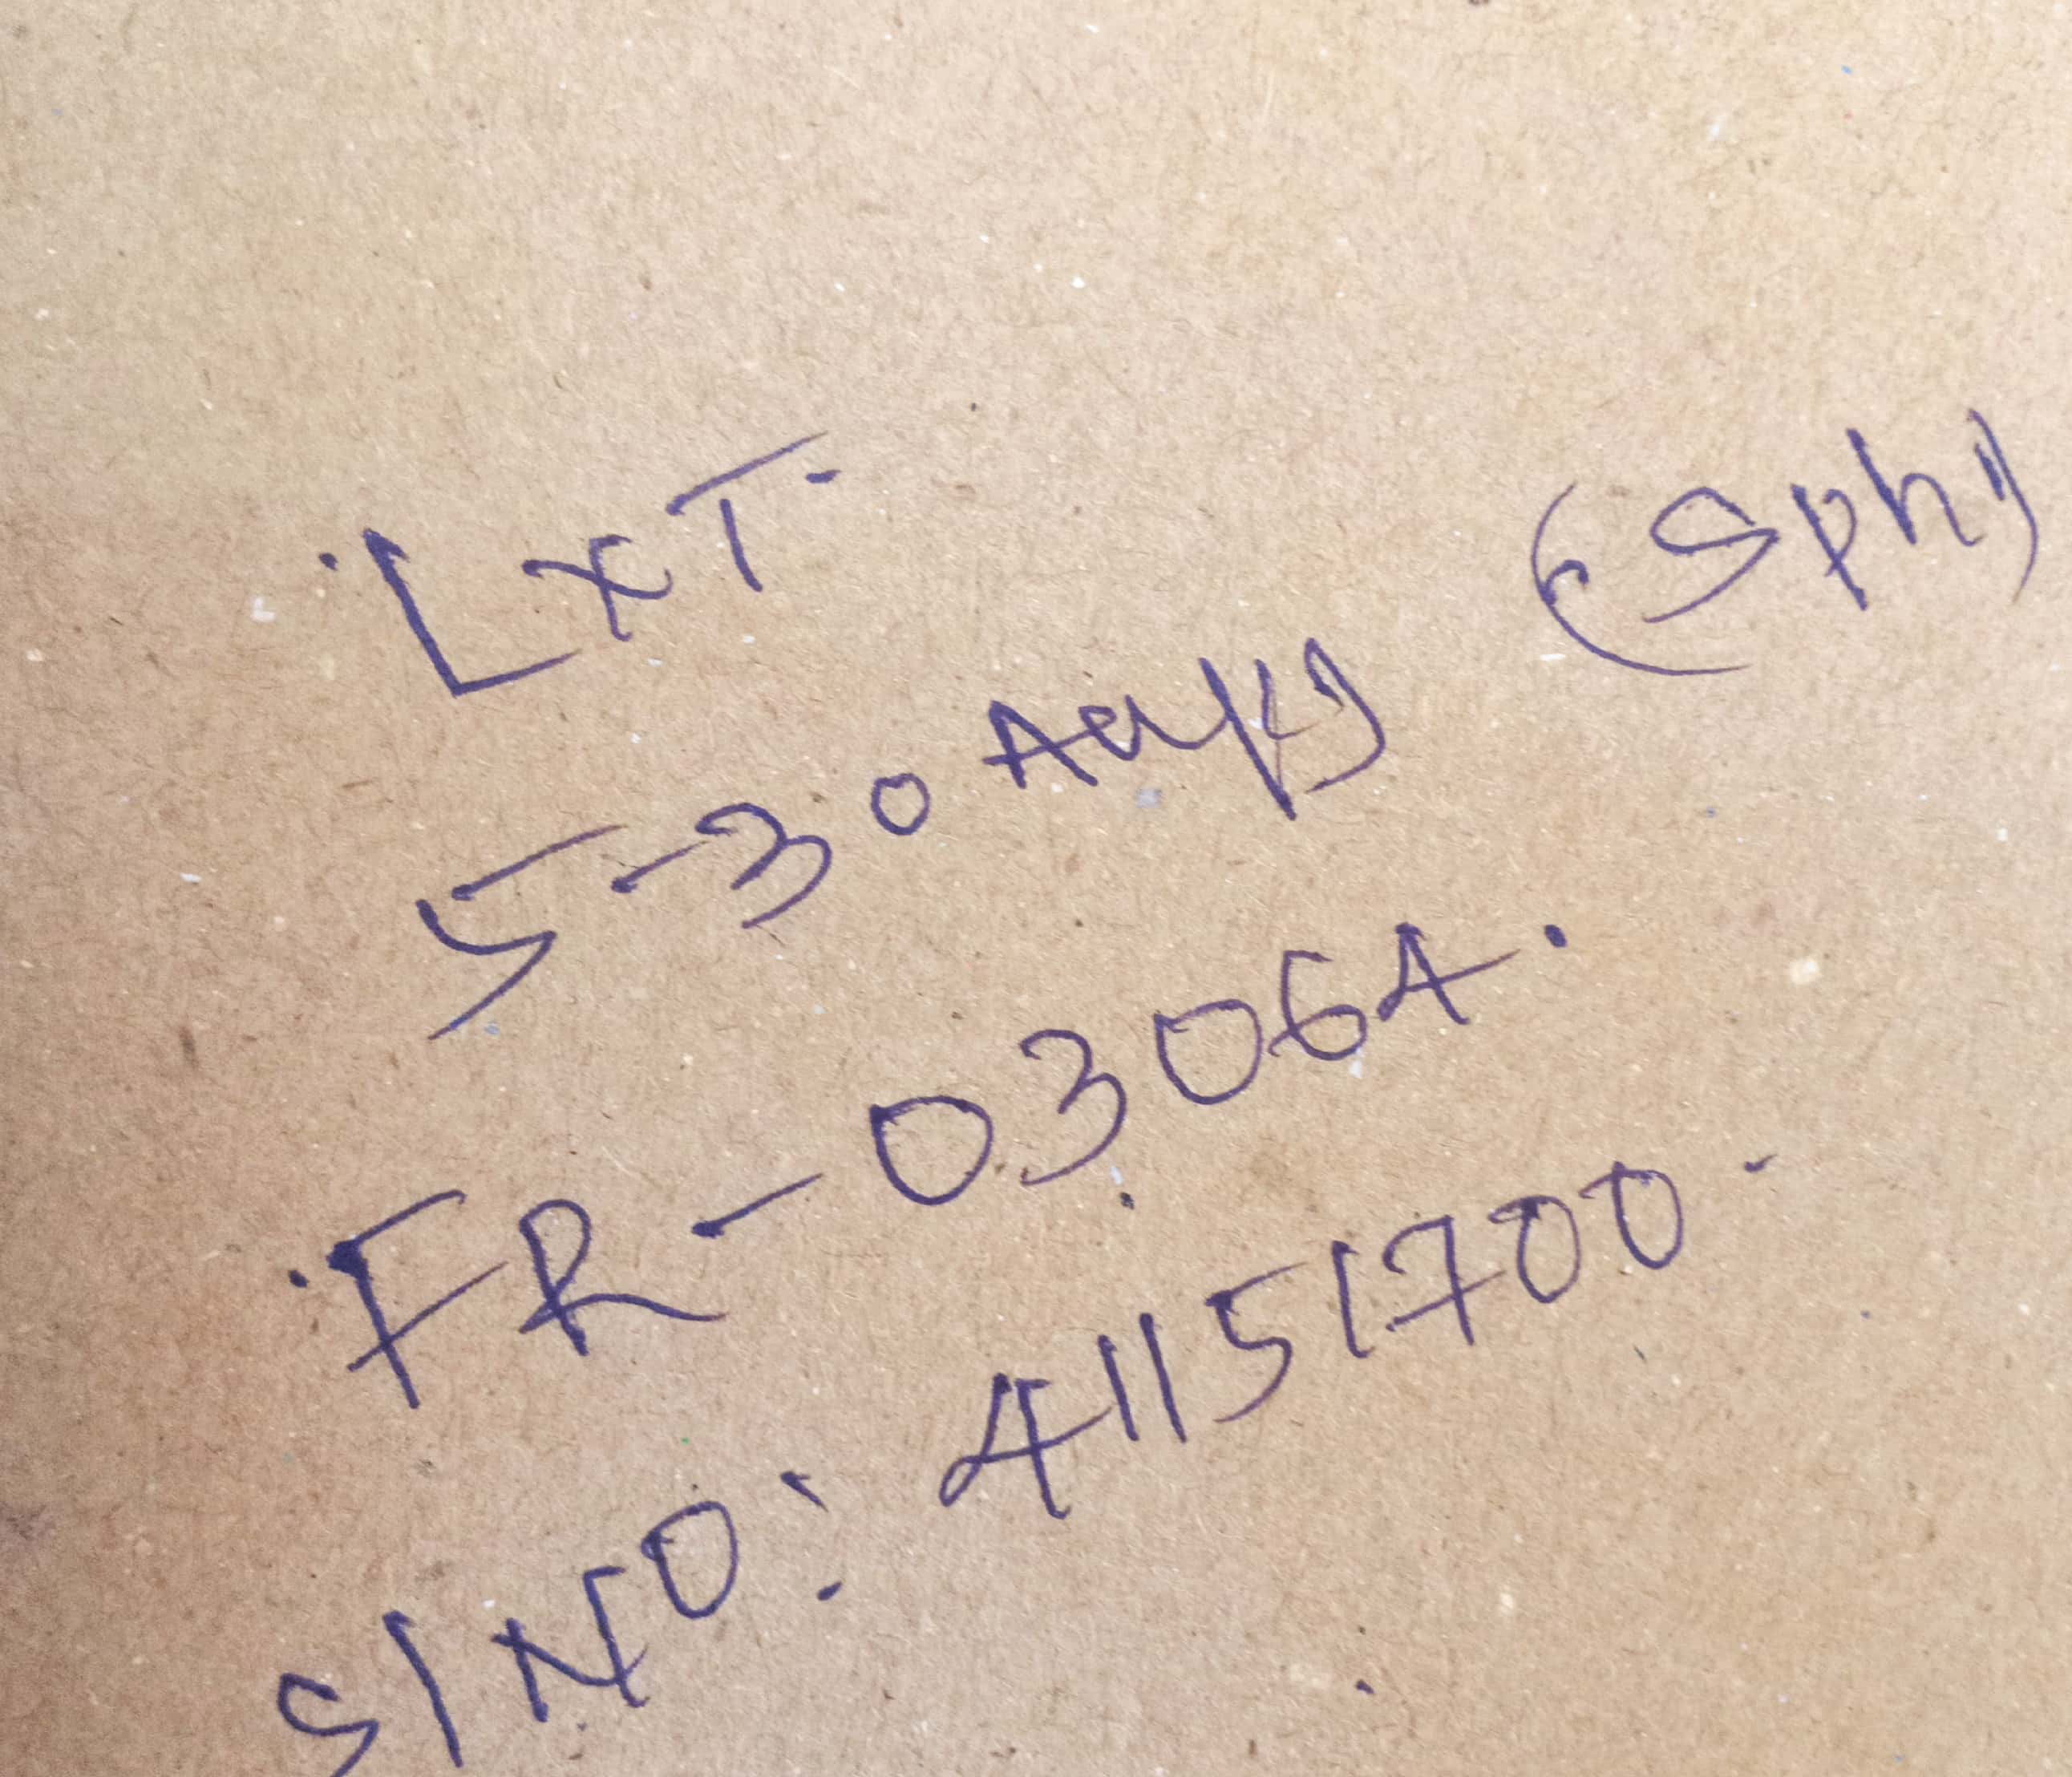 LXT
5-30 (Sph)
FR-03064.
S/NO: 41151700